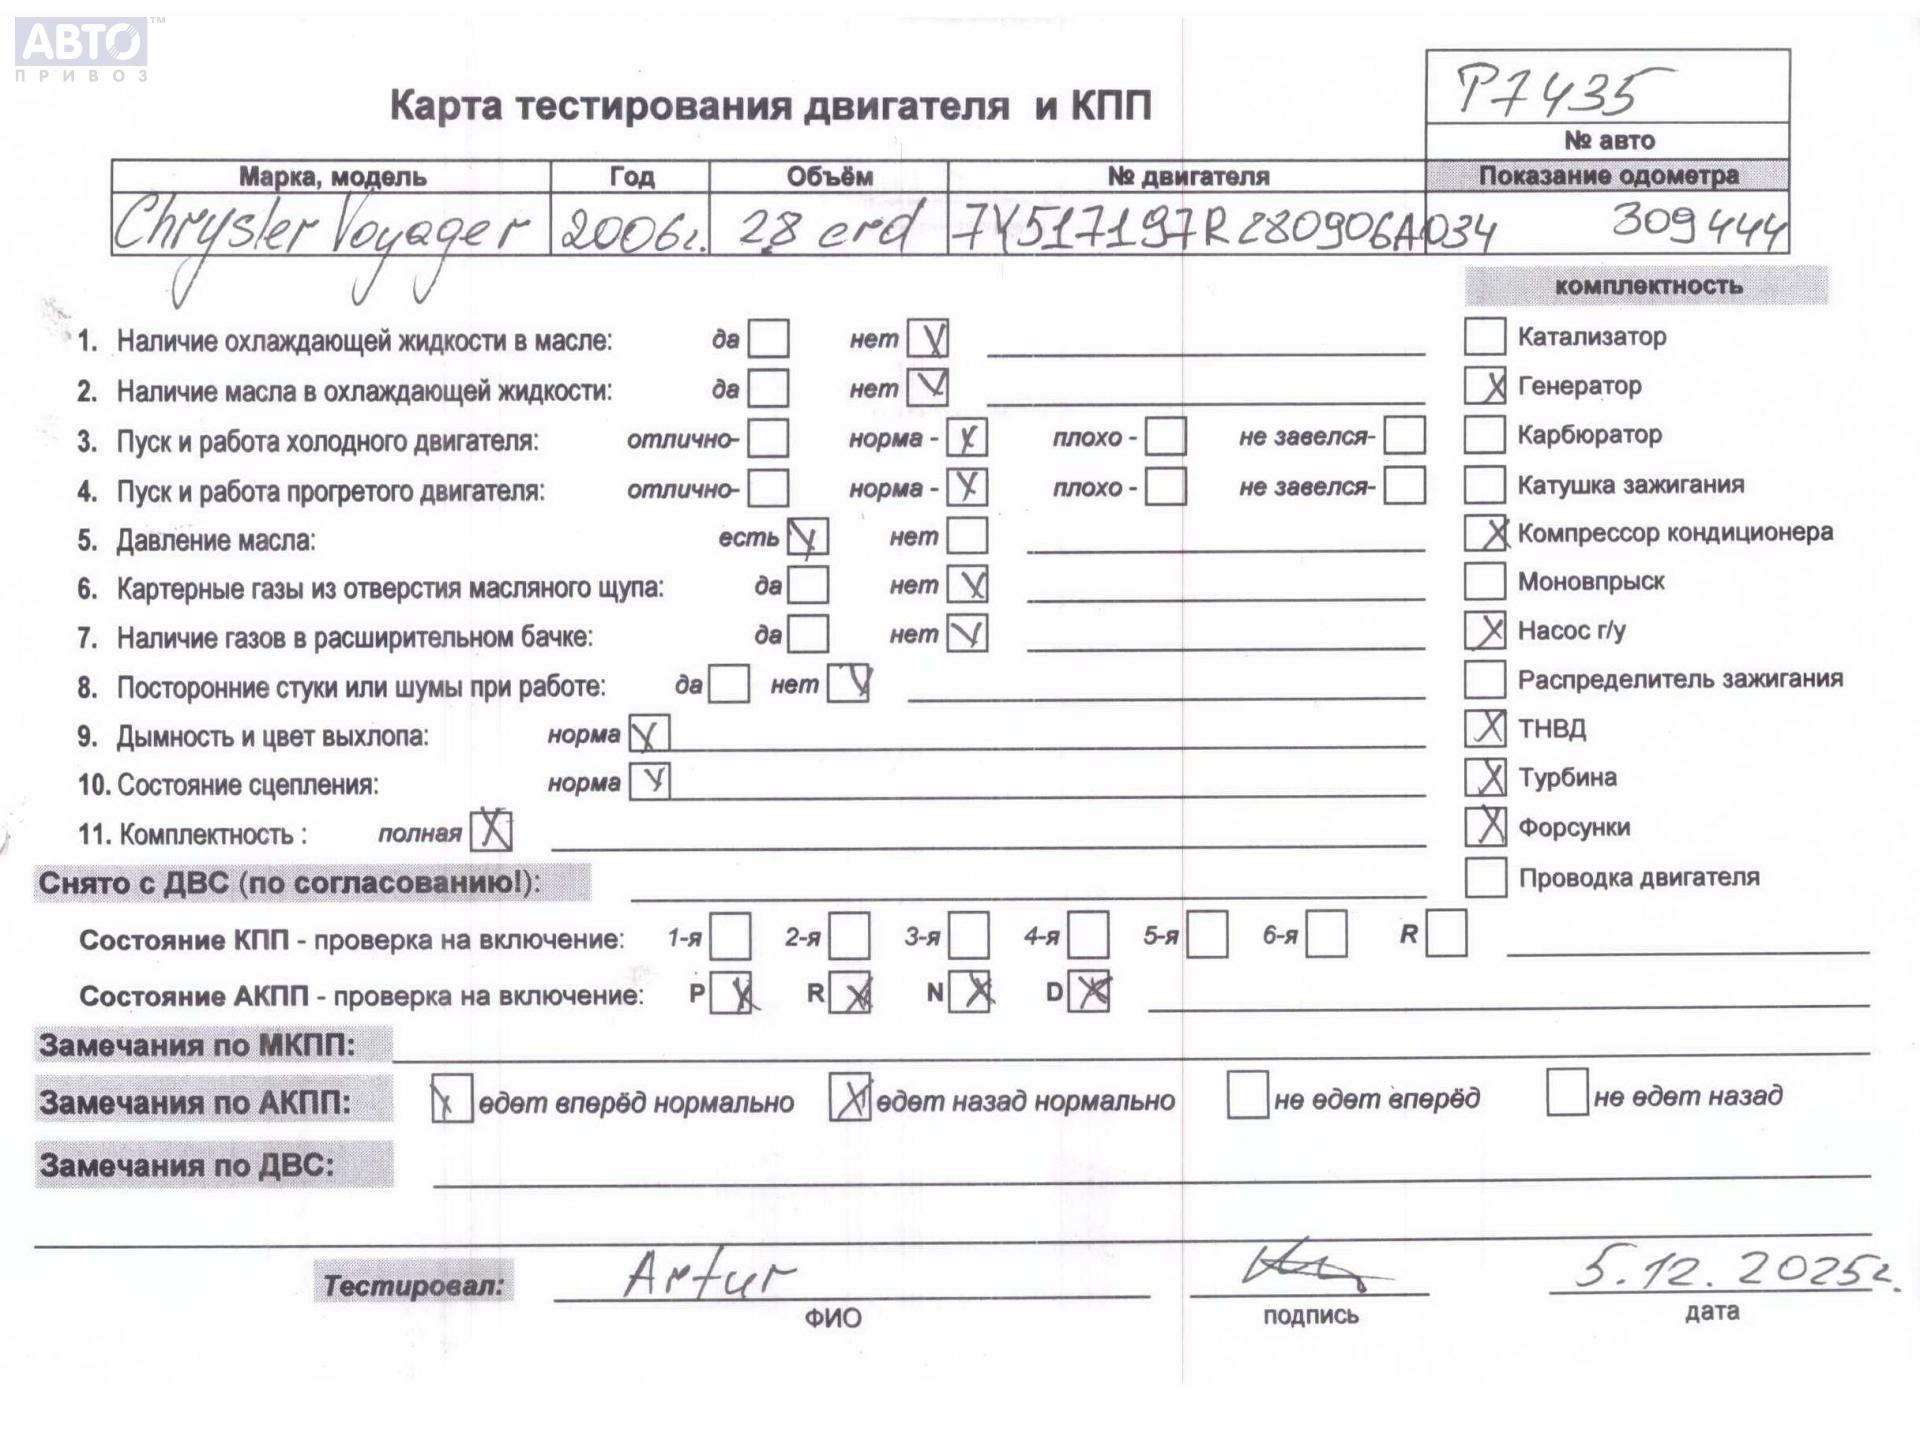 АВТО™
ПРИВОЗ
P7435
Карта тестирования двигателя и КПП
№ авто
Марка, модель Год Объём № двигателя Показание одометра
Chrysler Voyager 2006г. 2.8 crd 7Y517197R280906A034 309444
комплектность
1. Наличие охлаждающей жидкости в масле: да нет V Катализатор
2. Наличие масла в охлаждающей жидкости: да нет V X Генератор
3. Пуск и работа холодного двигателя: отлично- норма - X плохо - не завелся- Карбюратор
4. Пуск и работа прогретого двигателя: отлично- норма - X плохо - не завелся- Катушка зажигания
5. Давление масла: есть X нет X Компрессор кондиционера
6. Картерные газы из отверстия масляного щупа: да нет X Моновпрыск
7. Наличие газов в расширительном бачке: да нет V X Насос г/у
8. Посторонние стуки или шумы при работе: да нет V Распределитель зажигания
9. Дымность и цвет выхлопа: норма X X ТНВД
10. Состояние сцепления: норма X X Турбина
11. Комплектность : полная X X Форсунки
Снято с ДВС (по согласованию!): Проводка двигателя
Состояние КПП - проверка на включение: 1-я 2-я 3-я 4-я 5-я 6-я R
Состояние АКПП - проверка на включение: P X R X N X D X
Замечания по МКПП:
Замечания по АКПП: X едет вперёд нормально X едет назад нормально не едет вперёд не едет назад
Замечания по ДВС:
Тестировал: Artur 5.12.2025г.
ФИО подпись дата